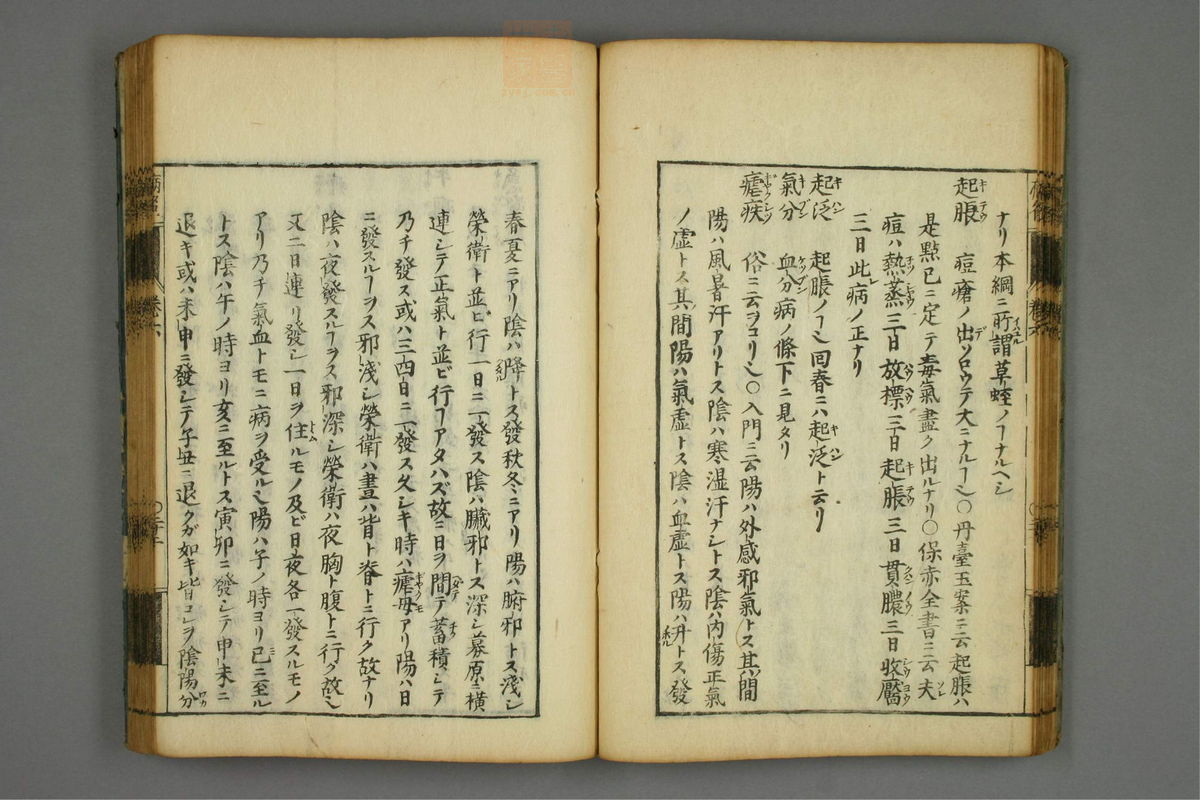 ナリ本綱ニ所謂草蛭ノヿナルヘシ
起脹 痘瘡ノ出ソロウテ大ニナルヿ也○丹臺玉案ニ云起脹ハ
是㸃已ニ定テ毒氣盡ク出ルナリ○保赤全書ニ云夫
痘ハ熱蒸三日放標三日起脹三日貫膿三日收靨
三日此病ノ正ナリ
起泛 起脹ノヿ也回春ニハ起泛ト云リ
氣分 血分病ノ條下ニ見タリ
瘧疾 俗ニ云ヲコリ也○入門ニ云陽ハ外感邪氣トス其間
陽ハ風暑汗アリトス陰ハ寒湿汗ナシトス陰ハ内傷正氣
ノ虚トス其間陽ハ氣虚トス陰ハ血虚トス陽ハ升トス發
春夏ニアリ陰ハ降トス發秋冬ニアリ陽ハ腑邪トス淺シ
榮衛ト並ビ行一日ニ一發ス陰ハ臟邪トス深シ募原ニ横
連シテ正氣ト並ビ行ヿアタハズ故ニ日ヲ間テ蓄積シテ
乃チ發ス或ハ三四日ニ一發ス久シキ時ハ瘧母アリ陽ハ日
ニ發スルヿヲス邪淺シ榮衛ハ晝ハ背ト脊トニ行ク故ナリ
陰ハ夜發スルヿヲス邪深シ榮衛ハ夜胸ト腹トニ行ク故也
又二日連リ發シ一日ヲ住ルモノ及ビ日夜各一發スルモノ
アリ乃チ氣血トモニ病ヲ受ル也陽ハ子ノ時ヨリ巳ニ至ル
トス陰ハ午ノ時ヨリ亥ニ至ルトス寅卯ニ發シテ申未ニ
退キ或ハ未申ニ發シテ子丑ニ退クガ如キ皆コレヲ陰陽分
卷六